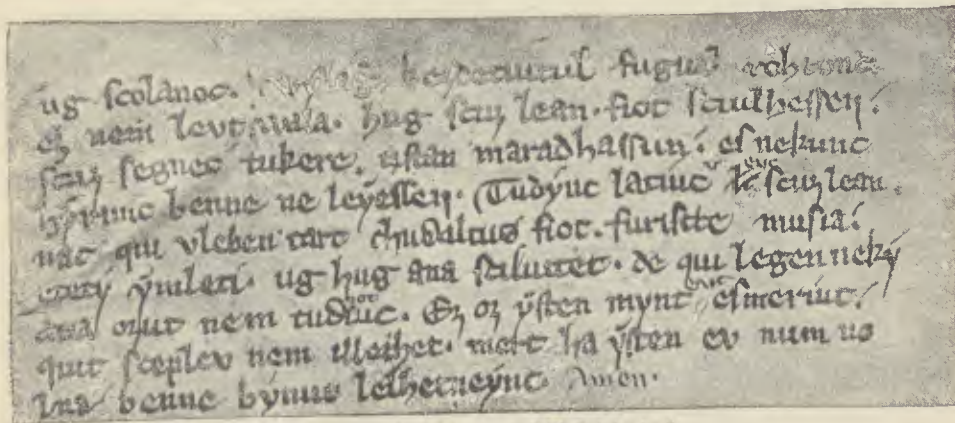 ug scolanoc. kezdetuitul fugua rohtonc
ez nem levt wala. hug scuz lean. fiot sciulhessen.
scuz segnec tukere. tistan maradhassun. es nekunc
hyrunc benne ne leyessen. Tudyuc latiuc scuz lean
nac. qui vleben tart chudaltus fiot. furiscte musia.
etety ymleti. ug hug ana sciluttet. de qui legen neky
atia ozut nem tudhotiuc. Ez oz ysten mynt esmeriuc.
quit sceplev nem illethet. mert ha ysten ev num uo
lna benne bynut lelhetneync. Amen.